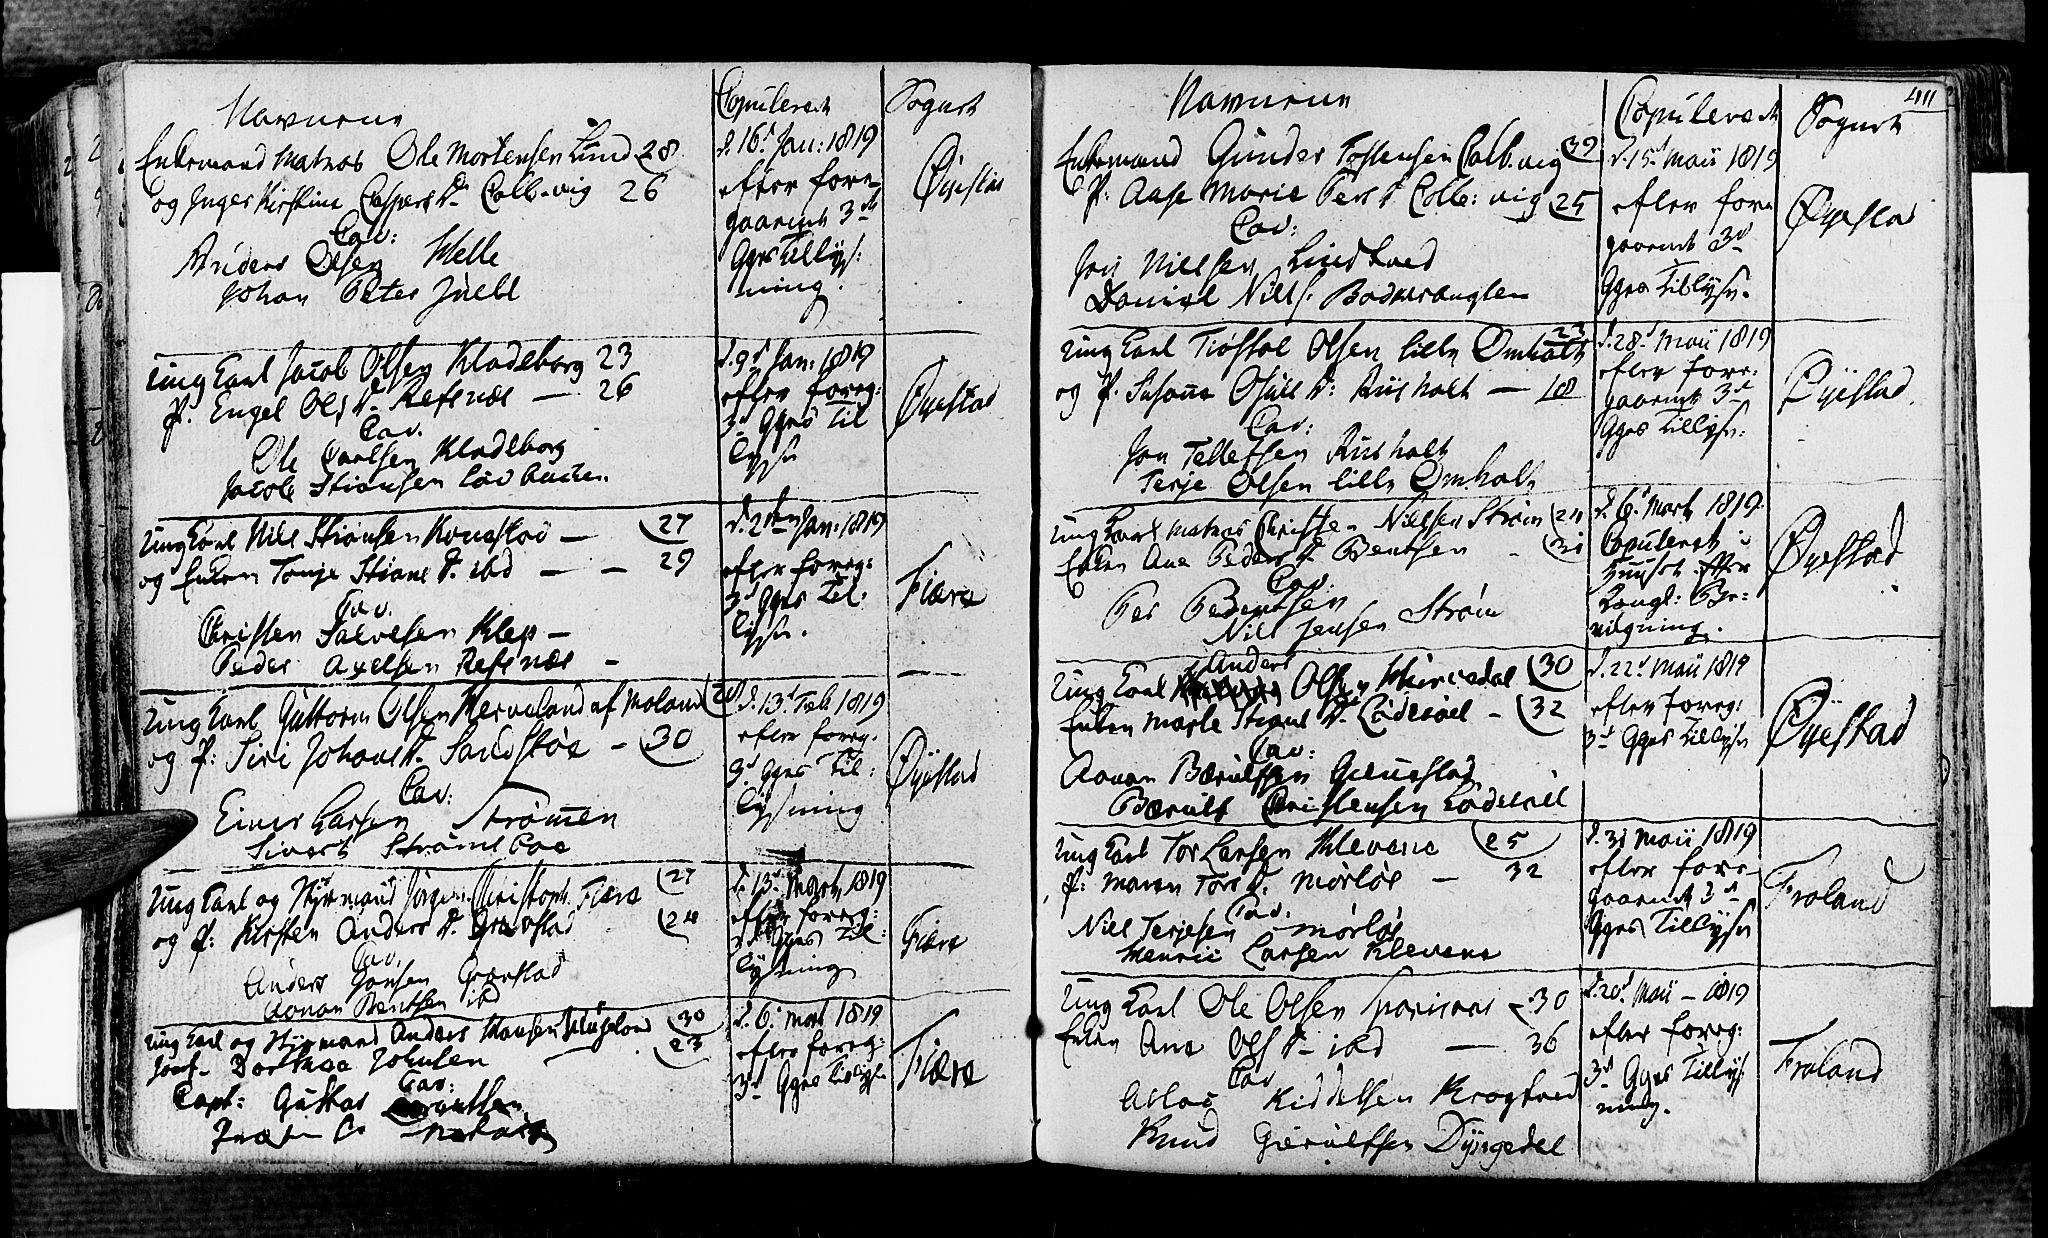 Navnene
Copuleret
Sognet
Enkemand Matros Ole Mortensen Lund 28
og Inger Kirstine Caspersd. Colb.vig 26
Cav:
Anders Olsen Helle
Johan Peter Juell
d. 16d Jan: 1819
efter fore-
gaaende 3de
Gges Tillys:
ning.
Øyestad
Ung Karl Jacob Olsen Kladeborg 23
P. Engel Olsd. Refsnæs — 26
Cav.
Ole Carlsen Kladeborg
Jacob Stiansen
d. 9d Jan: 1819
efter foreg:
3d Gges Til
lysn
Øyestad
Ung Karl Niels Stiansen — 27
og Enken Tonje Stiansd. ibd — — 29
Cav.
Christen Salvesen Klep —
Peder Axelsen Refsnæs —
d. 2den Jan: 1819
efter foreg:
3d Gges Til:
lysn.
Fiære
Ung Karl Guttorm Olsen af Moland
og P: Siri Johansd. — 30
Cav:
Einer Larsen Strømmen
Sivert
d. 13d Feb 1819
efter foreg.
3d Gges Til:
lysning
Øyestad
Ung Karl og Styrmand Jørgen Christoph. Fiære 27
og P: Kirsten Andersd. Grævstad
Cav.
Anders Jonsen Grævstad
Aanon Bentsen ibd
d. 13d Marts 1819
efter foreg:
3d Gges Til:
lysning
Fiære
Ung Karl og Styrmand Anders Hansen 30
Jomf. Dorthea Johnsen 23
Cav:
Capt: Gustav
d. 6. Mart 1819
efter foreg:
3d Gges
Fiære
Navnene
Copuleret
Sognet
Enkemand Gunder Tostensen Colb.vig 39
P. Aase Marie Persd Colb: vig 25
Cav:
Jon Nielsen Lindtved
Daniel Niels.
d. 15d Maii 1819
efter fore
gaaende 3d
Gges Tillysn.
Øyestad
Ung Karl Tiøstol Olsen lille Omholt 23
og P. Susanne Osulsd: Riisholt — 18
Cav:
Jon Tellefsen Riisholt
Terje Olsen lille Omholt
d. 28d Maii 1819
efter fore:
gaaende 3d
Gges Tillysn:
Øyestad
Ung Karl Matros Christen Nielsen Strøm
Enken Ane Pedersd. Bentsen
Cav.
Per Berntsen
Niels Jensen Strøm
d. 6d Marts 1819
Copuleret i
Huuset efter
Kongl: Be-
vilgning.
Øyestad
Ung Karl Anders Olsen 30
Enken Marte Stiansd. Lødesøel — 32
Cav:
Aanon
Christensen Lødesøel
d. 22d Maii 1819
efter foreg:
3d Gges Tillysn
Øyestad
Ung Karl Tor Larsen Klevene 25
P: Maren Torsd. Mørløs — 32
Cav.
Niels Terjesen Mørløs
Henric Larsen Klevene
d. 31 Maii 1819
efter fore-
gaaende 3d
Gges Tillysn
Froland
Ung Karl Ole Olsen 30
Enken Ane Olsd. ibd — 36
Cav
Aslac Kiddelsen
Knud Dyngedal
d. 20d Maii — 1819
efter foreg:
3d Gges Tillys
ning.
Froland